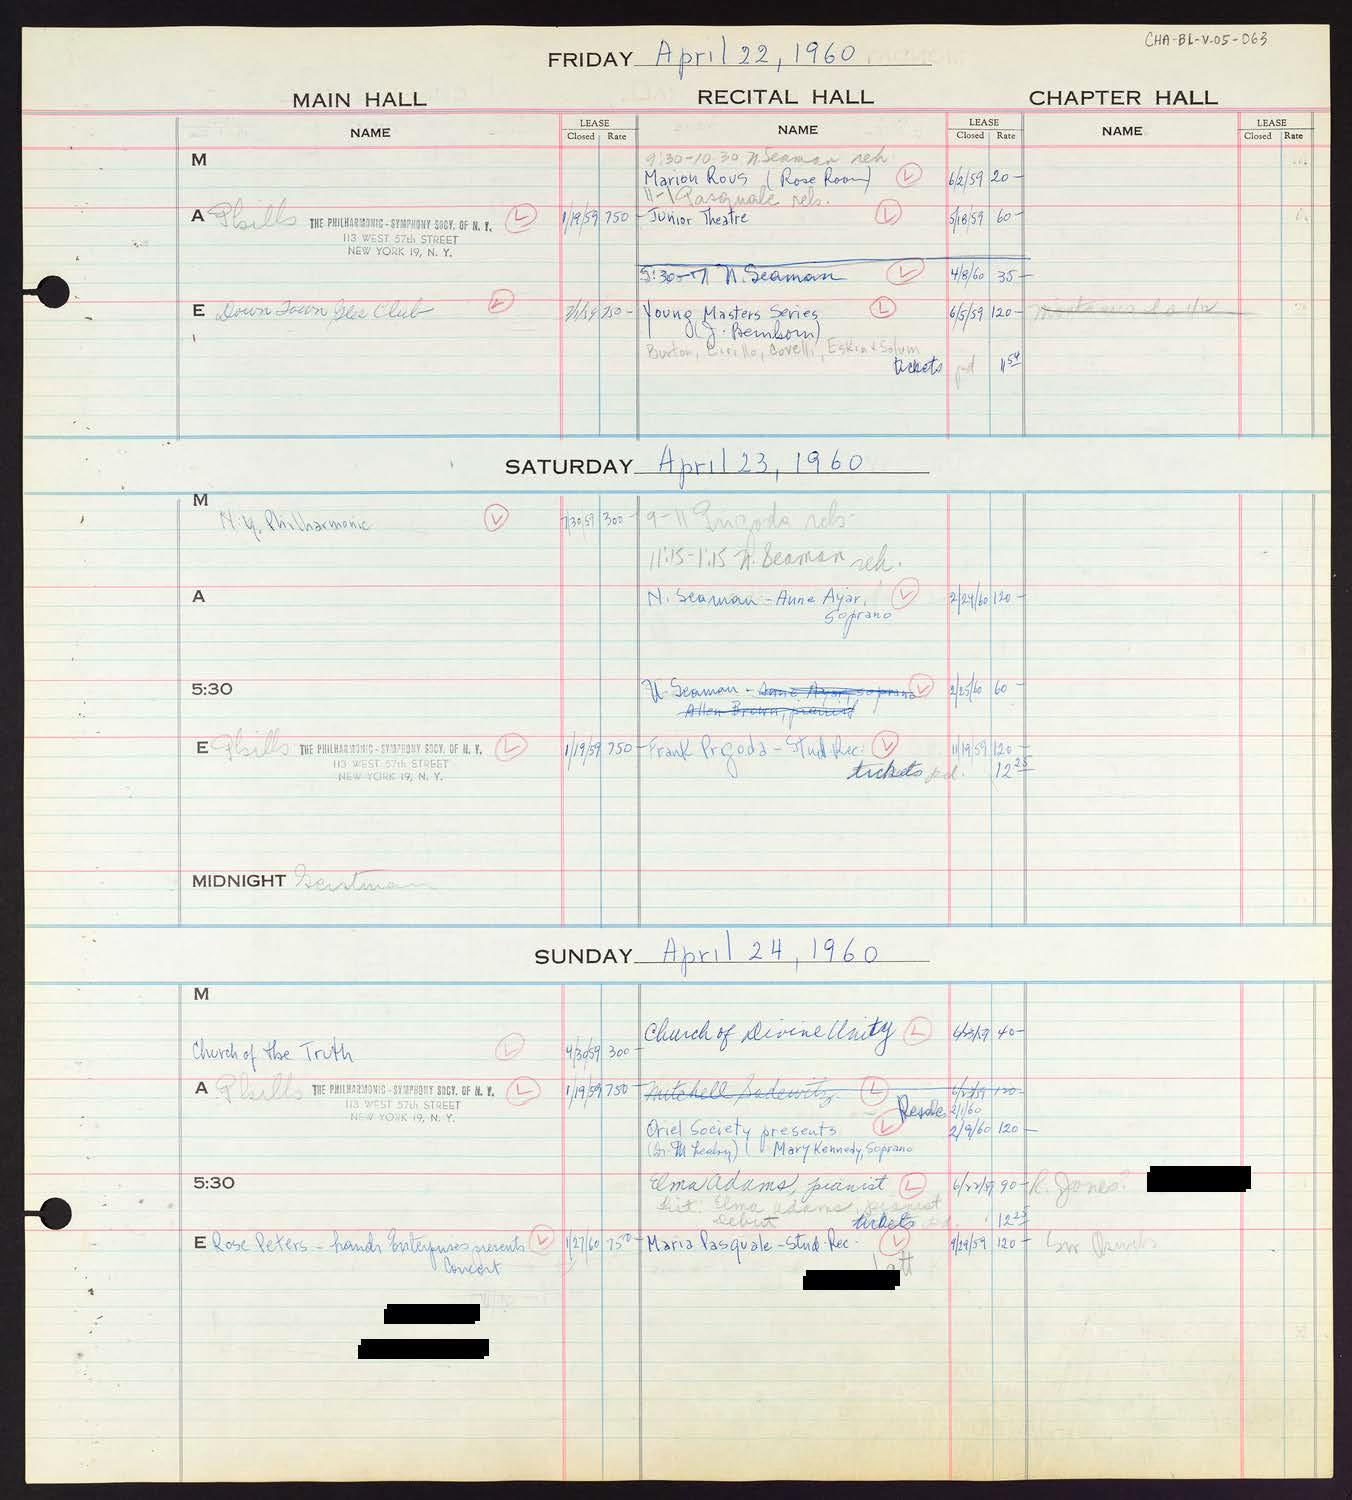 CHA-BL-V-05-063
FRIDAY April 22, 1960
MAIN HALL RECITAL HALL CHAPTER HALL
NAME LEASE Closed Rate NAME LEASE Closed Rate NAME LEASE Closed Rate
M 9:30-10:30 N. Seaman reh
Marion Rous (Rose Room) L 6/2/59 20-
11-1 Pasquale rehs.
A Phills THE PHILHARMONIC-SYMPHONY SOCY. OF N. Y. L 1/19/59 750- Junior Theatre L 5/18/59 60-
113 WEST 57th STREET
NEW YORK 19, N. Y.
5:30-7 N. Seaman L 4/8/60 35-
E Down Town Glee Club L 7/1/59 750- Young Masters Series L 6/5/59 120-
(J. Bernborn)
Burton, Cirillo, Covelli, Eskin & Solum
tickets pd 11 54
SATURDAY April 23, 1960
M
N.Y. Philharmonic L 7/30/59 300- 9-11 Prigoda rehs-
11:15-1:15 N. Seaman reh.
A N. Seaman - Anne Ayar, L 2/24/60 120-
Soprano
5:30 N. Seaman - Anne Ayar, soprano L 2/25/60 60-
Allen Brown, pianist
E Phills THE PHILHARMONIC-SYMPHONY SOCY. OF N. Y. L 1/19/59 750- Frank Prgoda - Stud. Rec. L 11/19/59 120-
113 WEST 57th STREET tickets pd. 12 25
NEW YORK 19, N. Y.
MIDNIGHT Gerstman
SUNDAY April 24, 1960
M
Church of Divine Unity L 6/23/59 40-
Church of the Truth L 4/30/59 300-
A Phills THE PHILHARMONIC-SYMPHONY SOCY. OF N. Y. L 1/19/59 750- Mitchell Sadewitz L 120-
113 WEST 57th STREET
NEW YORK 19, N. Y. Resale 2/1/60
Oriel Society presents L 2/9/60 120-
Mary Kennedy, Soprano
5:30 Elma Adams, pianist L 6/22/59 90- R. Jones?
Elma Adams, pianist
debut tickets pd. 12 25
E Rose Peters - presents L 1/27/60 750- Maria Pasquale - Stud. Rec. L 9/29/59 120-
Concert
att